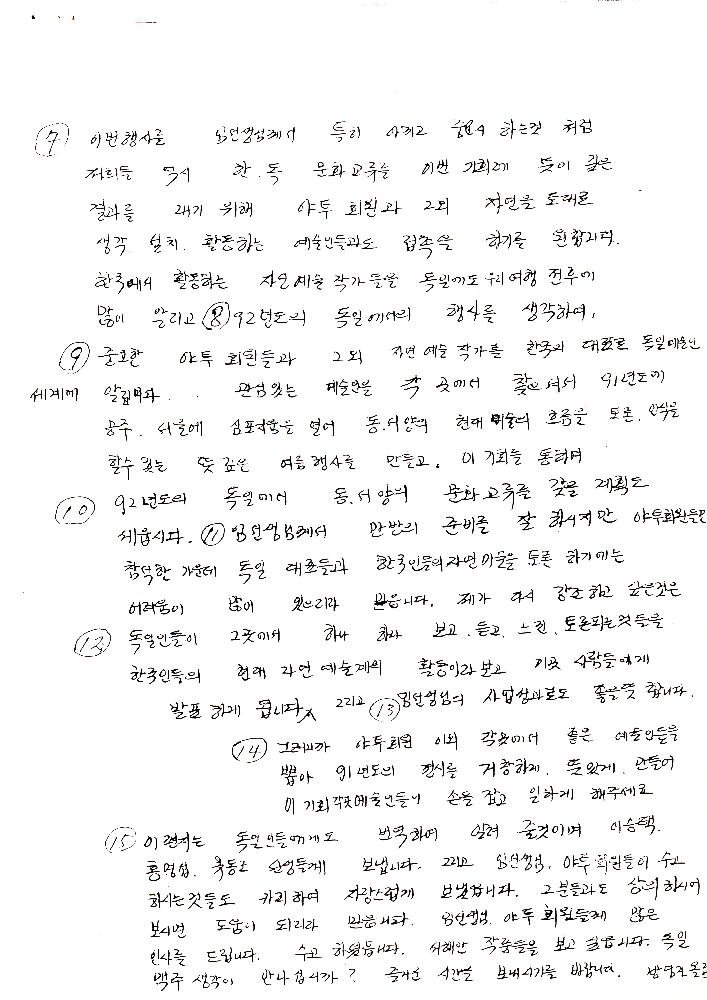 ⑦ 이번행사를 임선생님께서 특히 아끼고 하는것 처럼
저희들 역시 한.독 문화교류를 이번 기회에 뜻이 깊은
결과를 내기 위해 야투 회원과 그외 자연을 토대로
생각, 설치, 활동하는 예술인들과도 접촉을 하기를 원합니다.
한국에서 활동하는 자연예술 작가들을 독일에도 우리여행 전후에
많이 알리고 ⑧ 92년도의 독일에서의 행사를 생각하여,
⑨ 중요한 야투 회원들과 그외 자연예술작가를 한국의 대표로 독일예술인
세계에 알립니다. 관심있는 예술인을 각 곳에서 찾으셔서 91년도에
공주, 서울에 심포지움을 열어 동.서양의 현대 미술의 흐름을 토론, 인식을
할수 있는 뜻 깊은 여름행사를 만들고, 이 기회를 통하여
⑩ 92년도의 독일에서 동.서양의 문화교류를 갖을 계획도
세웁시다. ⑪ 임선생님께서 만반의 준비를 잘 하시지만 야투회원들만
참석한 가운데 독일 대표들과 한국인들의 자연미술을 토론 하기에는
어려움이 많이 있으리라 믿습니다. 제가 다시 강조하고 싶은것은
⑫ 독일인들이 그곳에서 하나 하나 보고, 듣고, 느낀, 토론되는것들을
한국인들의 현대 자연 예술계의 활동이라보고 이곳 사람들에게
발표 하게 됩니다. 그리고 ⑬ 임선생님의 사업성과로도 좋을듯 합니다.
⑭ 그러니까 야투회원 이외 각곳에서 좋은 예술인들을
뽑아 91년도의 전시를 거창하게, 뜻있게, 만들어
이 기회 각곳예술인들이 손을 잡고 일하게 해주세요
⑮ 이 편지는 독일인들에게도 번역하여 알려 줄것이며 이승택,
홍명섭, 육동조 선생들께 보냅니다. 그리고 임선생님, 야투회원들이 수고
하시는것들도 카피하여 자랑스럽게 보냈습니다. 그분들과도 상의하시어
보시면 도움이 되리라 믿습니다. 임선생님, 야투 회원들께 많은
인사를 드립니다. 수고 하셨습니다. 서해안 작품들을 보고 싶습니다. 독일
맥주 생각이 안나십니까? 즐거운 시간을 보내시기를 바랍니다.